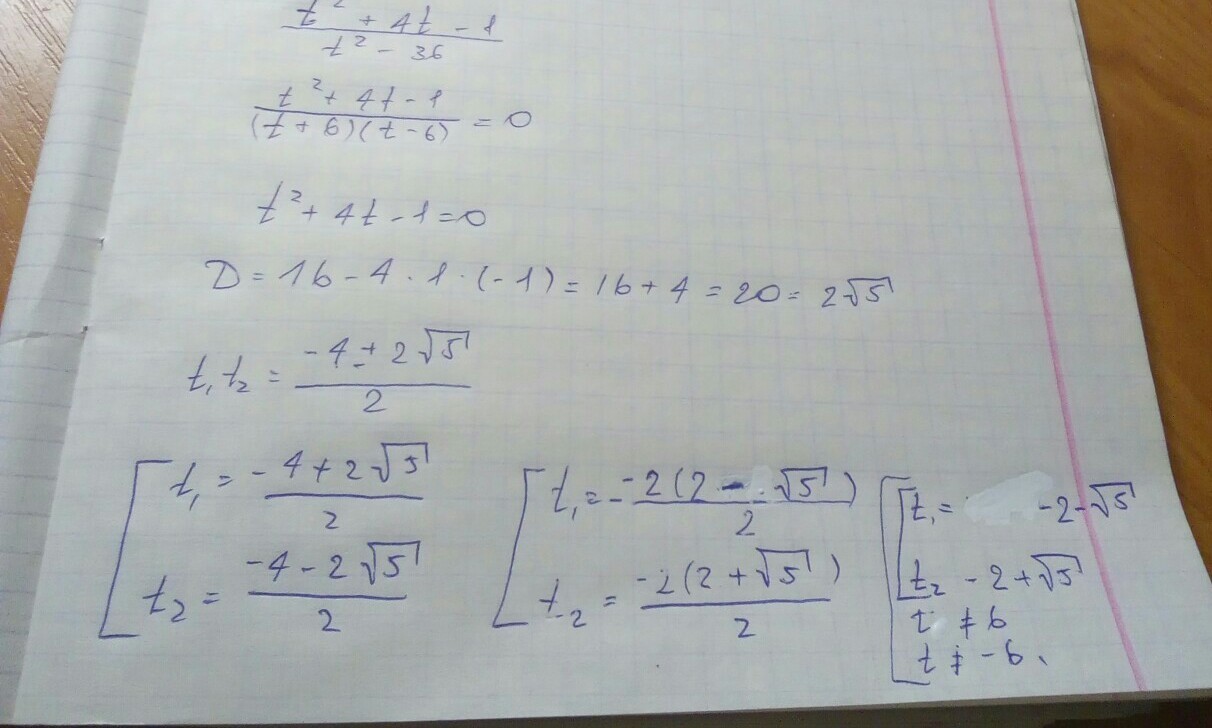 t² + 4t - 1
t² - 36
t² + 4t - 1
(t + 6)(t - 6) = 0
t² + 4t - 1 = 0
D = 16 - 4 · 1 · (-1) = 16 + 4 = 20 = 2√5
t₁ t₂ = (-4 ± 2√5) / 2
t₁ = (-4 + 2√5) / 2
t₂ = (-4 - 2√5) / 2
t₁ = (-2(2 - √5)) / 2
t₂ = (-2(2 + √5)) / 2
t₁ = -2 - √5
t₂ -2 + √5
t ≠ 6
t ≠ -6